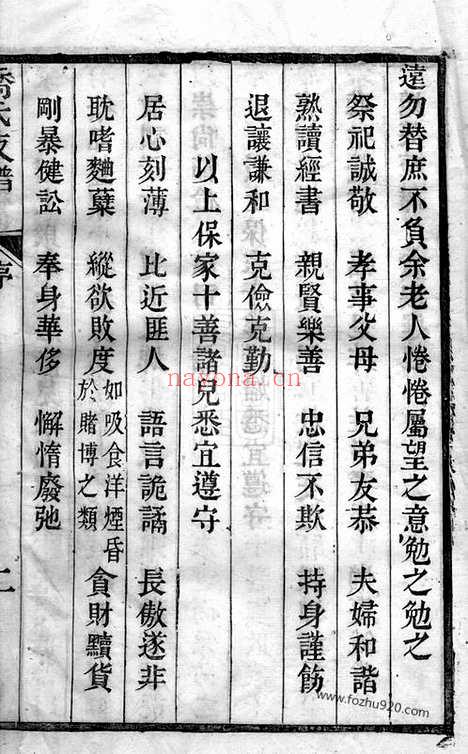 遠勿替庶不負余老人惓惓屬望之意勉之勉之
祭祀誠敬 孝事父母 兄弟友恭 夫婦和諧
熟讀經書 親賢樂善 忠信不欺 持身謹飭
退讓謙和 克儉克勤
以上保家十善諸兒悉宜遵守
居心刻薄 比近匪人 語言詭譎 長傲遂非
耽嗜麯糵 縱欲敗度如吸食洋煙昏於賭博之類 貪財黷貨
剛暴健訟 奉身華侈 懈惰廢弛
喬氏支譜
序
二
nayona.cn
www.fozhu920.com